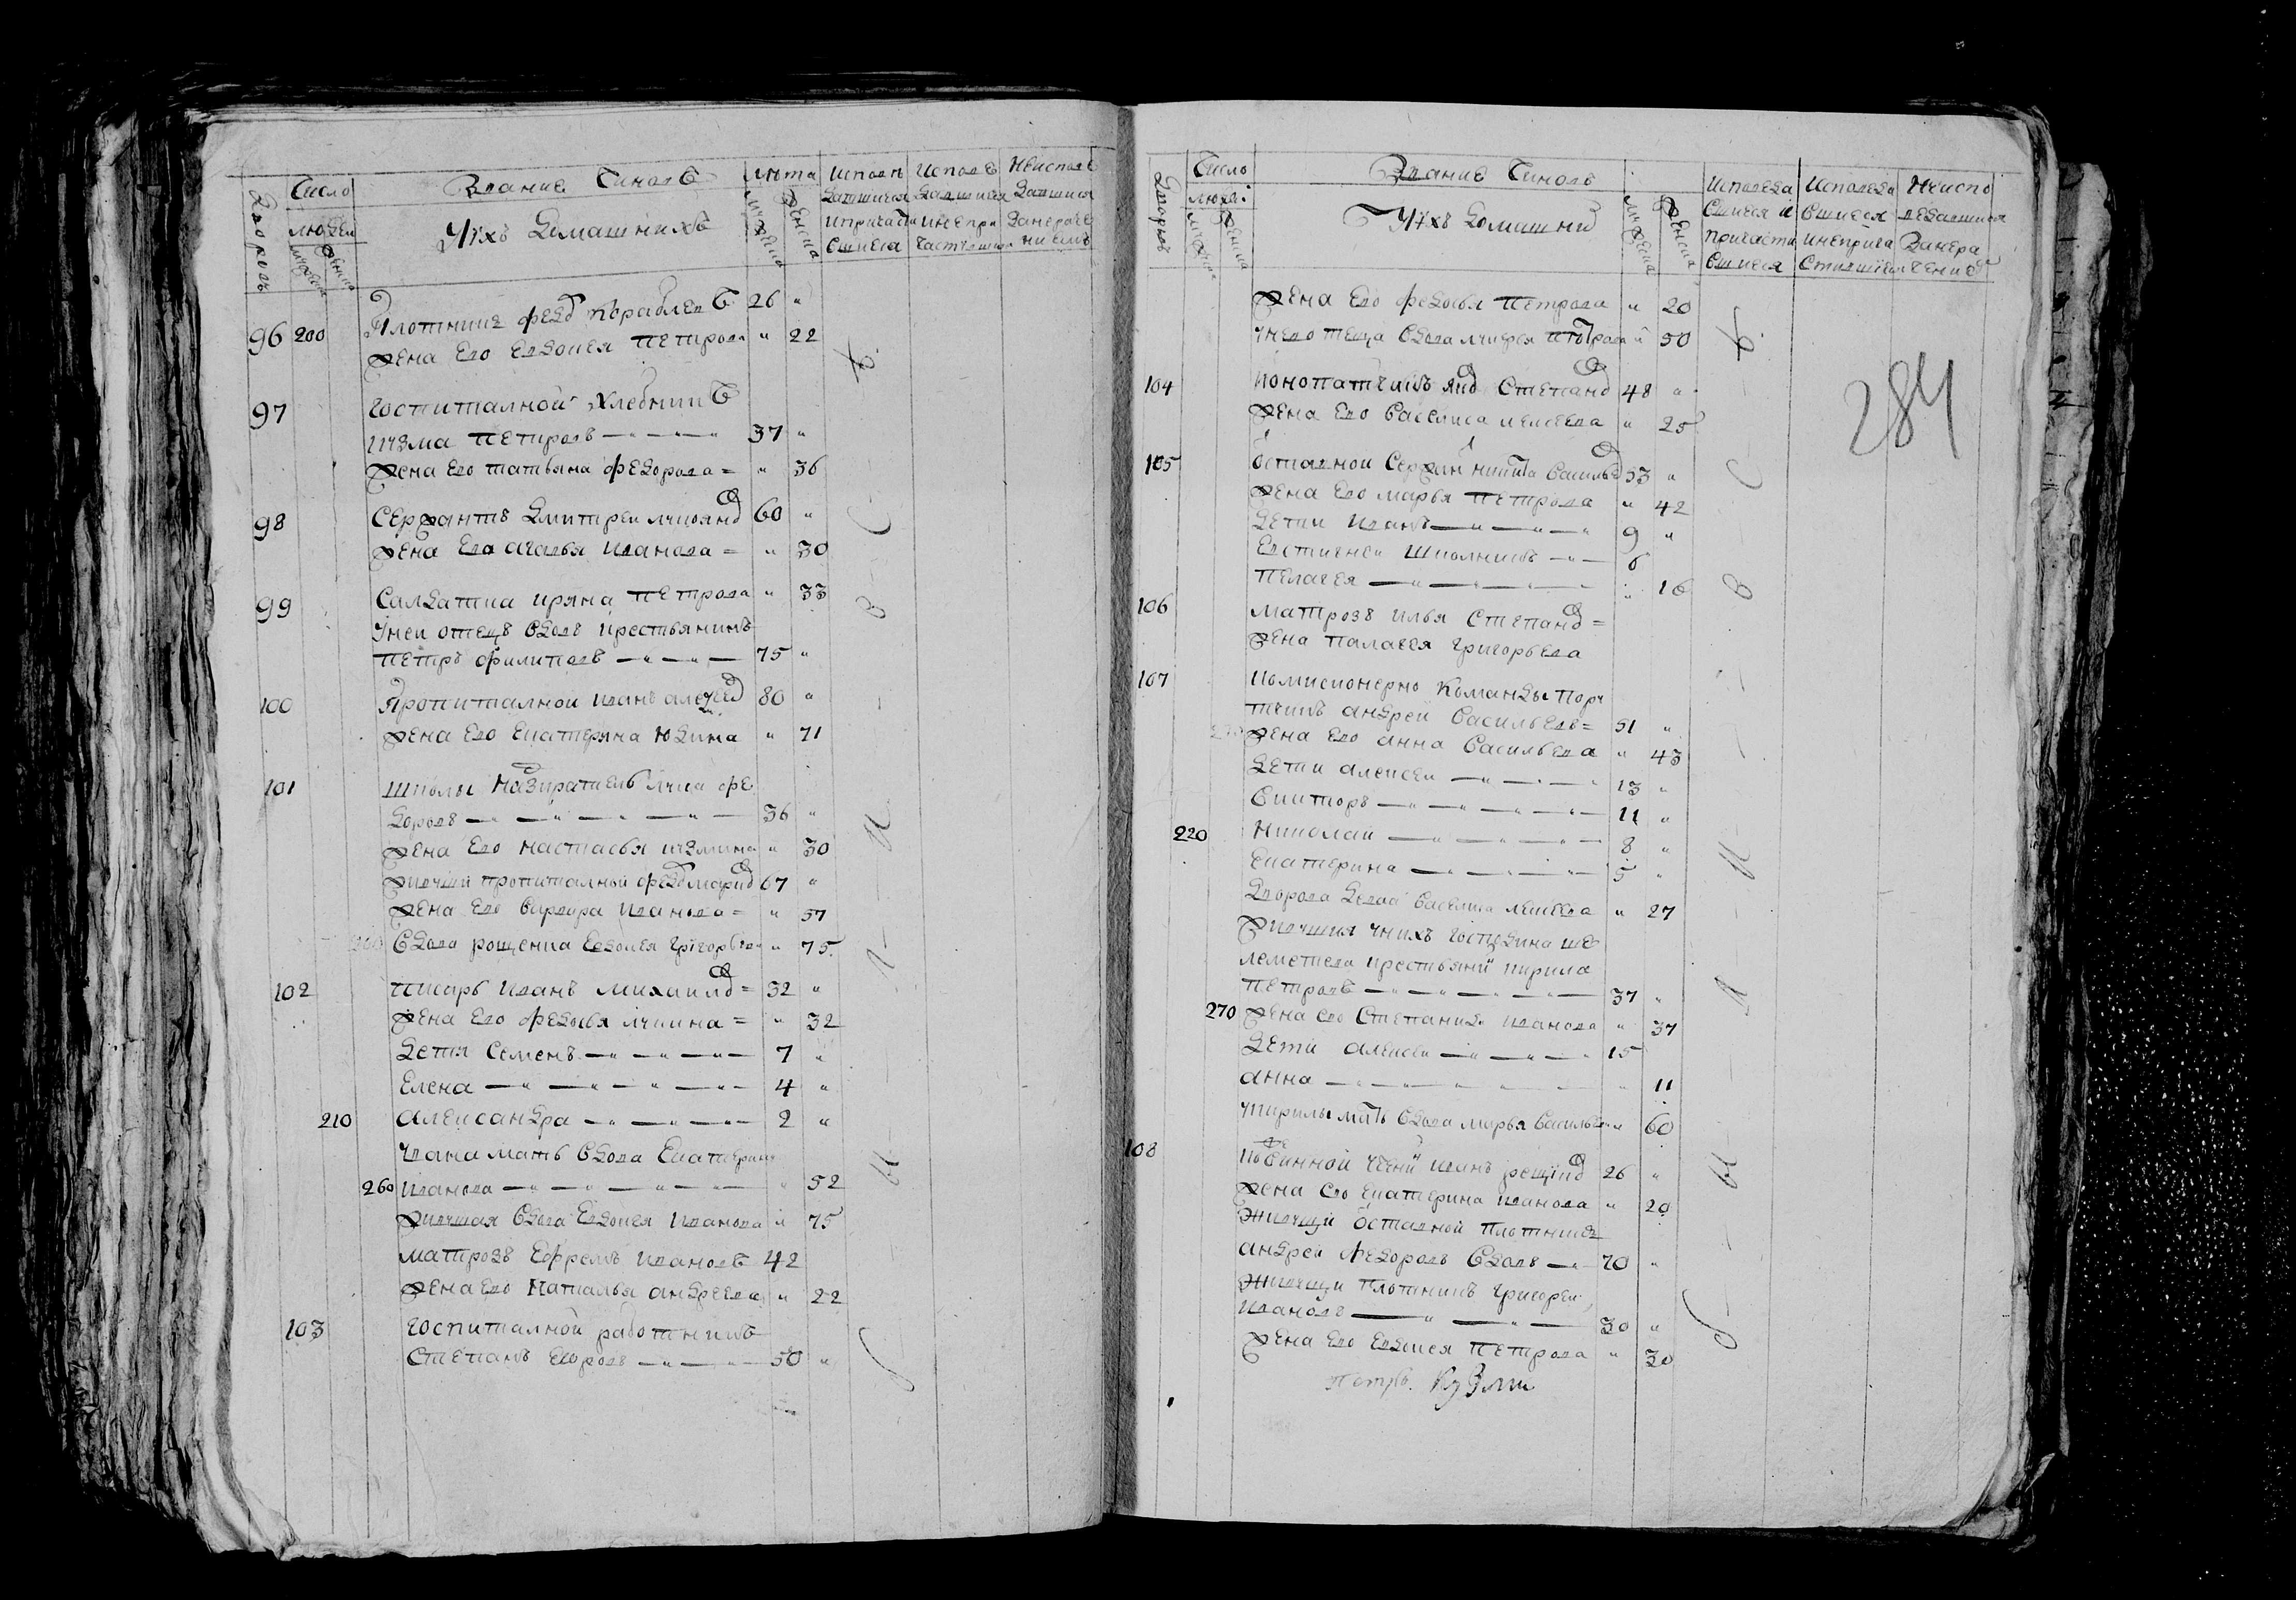 Дворовъ
Число
людей
Мужеска
Женска
Звание Чиновъ
И ихъ Домашнихъ
Лѣта
Мужеска
Женска
Исповѣдавшихся и причастившихся
Исповѣдавшихся и непричастившихся
Неисповѣдавшихся за нерачениемъ
96 200 Плотникъ Фед Кораблевъ 26 "
жена Ево Евдокея Петрова " 22
97 Госпиталной Хлебникъ
Кузма Петровъ 37 "
жена Ево Татьяна Федорова = " 36
98 Сержантъ Дмитреи Лукоянв 60 "
жена Ево Агафья Иванова = " 30
99 Салдатка Ирина Петрова " 33
У неи отецъ вдовъ крестьянинъ
Петръ Филиповъ 75 "
100 Пропиталной Иванъ 80 "
жена Ево Екатерина Юдина " 71
101 Школы Надзиратель Лука Фе
доровъ 36 "
жена Ево Настасья Кузмина " 30
живущий пропиталный Фед Марк 67 "
жена Ево Варвара Иванова = " 57
Вдова Евдокея Григорьев " 75
102 Писарь Иванъ Михаилв = 32 "
жена Ево Федосья Лукина = " 32
Дети Семенъ 7 "
Елена 4 "
210 Александра 2 "
Ивана мать вдова Екатерина
260 Иванова " 52
живущая вдова Евдокея Иванова " 75
матрозъ Ефремъ Ивановъ 42
жена Ево Наталья Андреева " 22
103 Госпиталной работникъ
Степанъ Егоровъ 50 "
Дворовъ
Число
людей
Мужеска
Женска
Звание Чиновъ
И ихъ Домашни
Мужеска
Женска
Исповедавшиеся и причастившиеся
Исповедавшиеся и непричастившиеся
Неисповедавшиеся за нерачение
284
жена Ево Федосья Петрова " 20
У нево теща вдова Лукерья Петрова " 50
104 Конопатчикъ Яко Степанв 48 "
жена Ево Василиса Алексеева " 25
105 Оставной Сержан Никита Васильв 53 "
жена Ево Марья Петрова " 42
Дети Иванъ 9 "
Евстигнеи Школникъ 6
Пелагея " 16
106 Матрозъ Илья Степанв =
жена Палагея Григорьева
107 Комисионерно Команды порт
Андрей Васильевъ = 51 "
жена Ево Анна Васильева " 43
Дети Алексеи 13 "
Викторъ 11 "
220 Николаи 8 "
Екатерина 5 "
Дворова Девка Василиса " 27
Живущия у нихъ господина Ше
реметева крестьяни Кирила
Петровъ 37 "
270 жена ево Степанида Иванова " 37
Дети Алексеи 15
Анна " 11
Кирилы мать вдова Марья Васильева " 60
108 Ивинъ 26 "
жена Ево Екатерина Иванова " 20
Живущи Оставной Плотникъ
Андрей Федоровъ вдовъ 70 "
Живущи Плотникъ Григореи
Ивановъ 30 "
жена Ево Евдокея Петрова " 30
Петръ Кузми